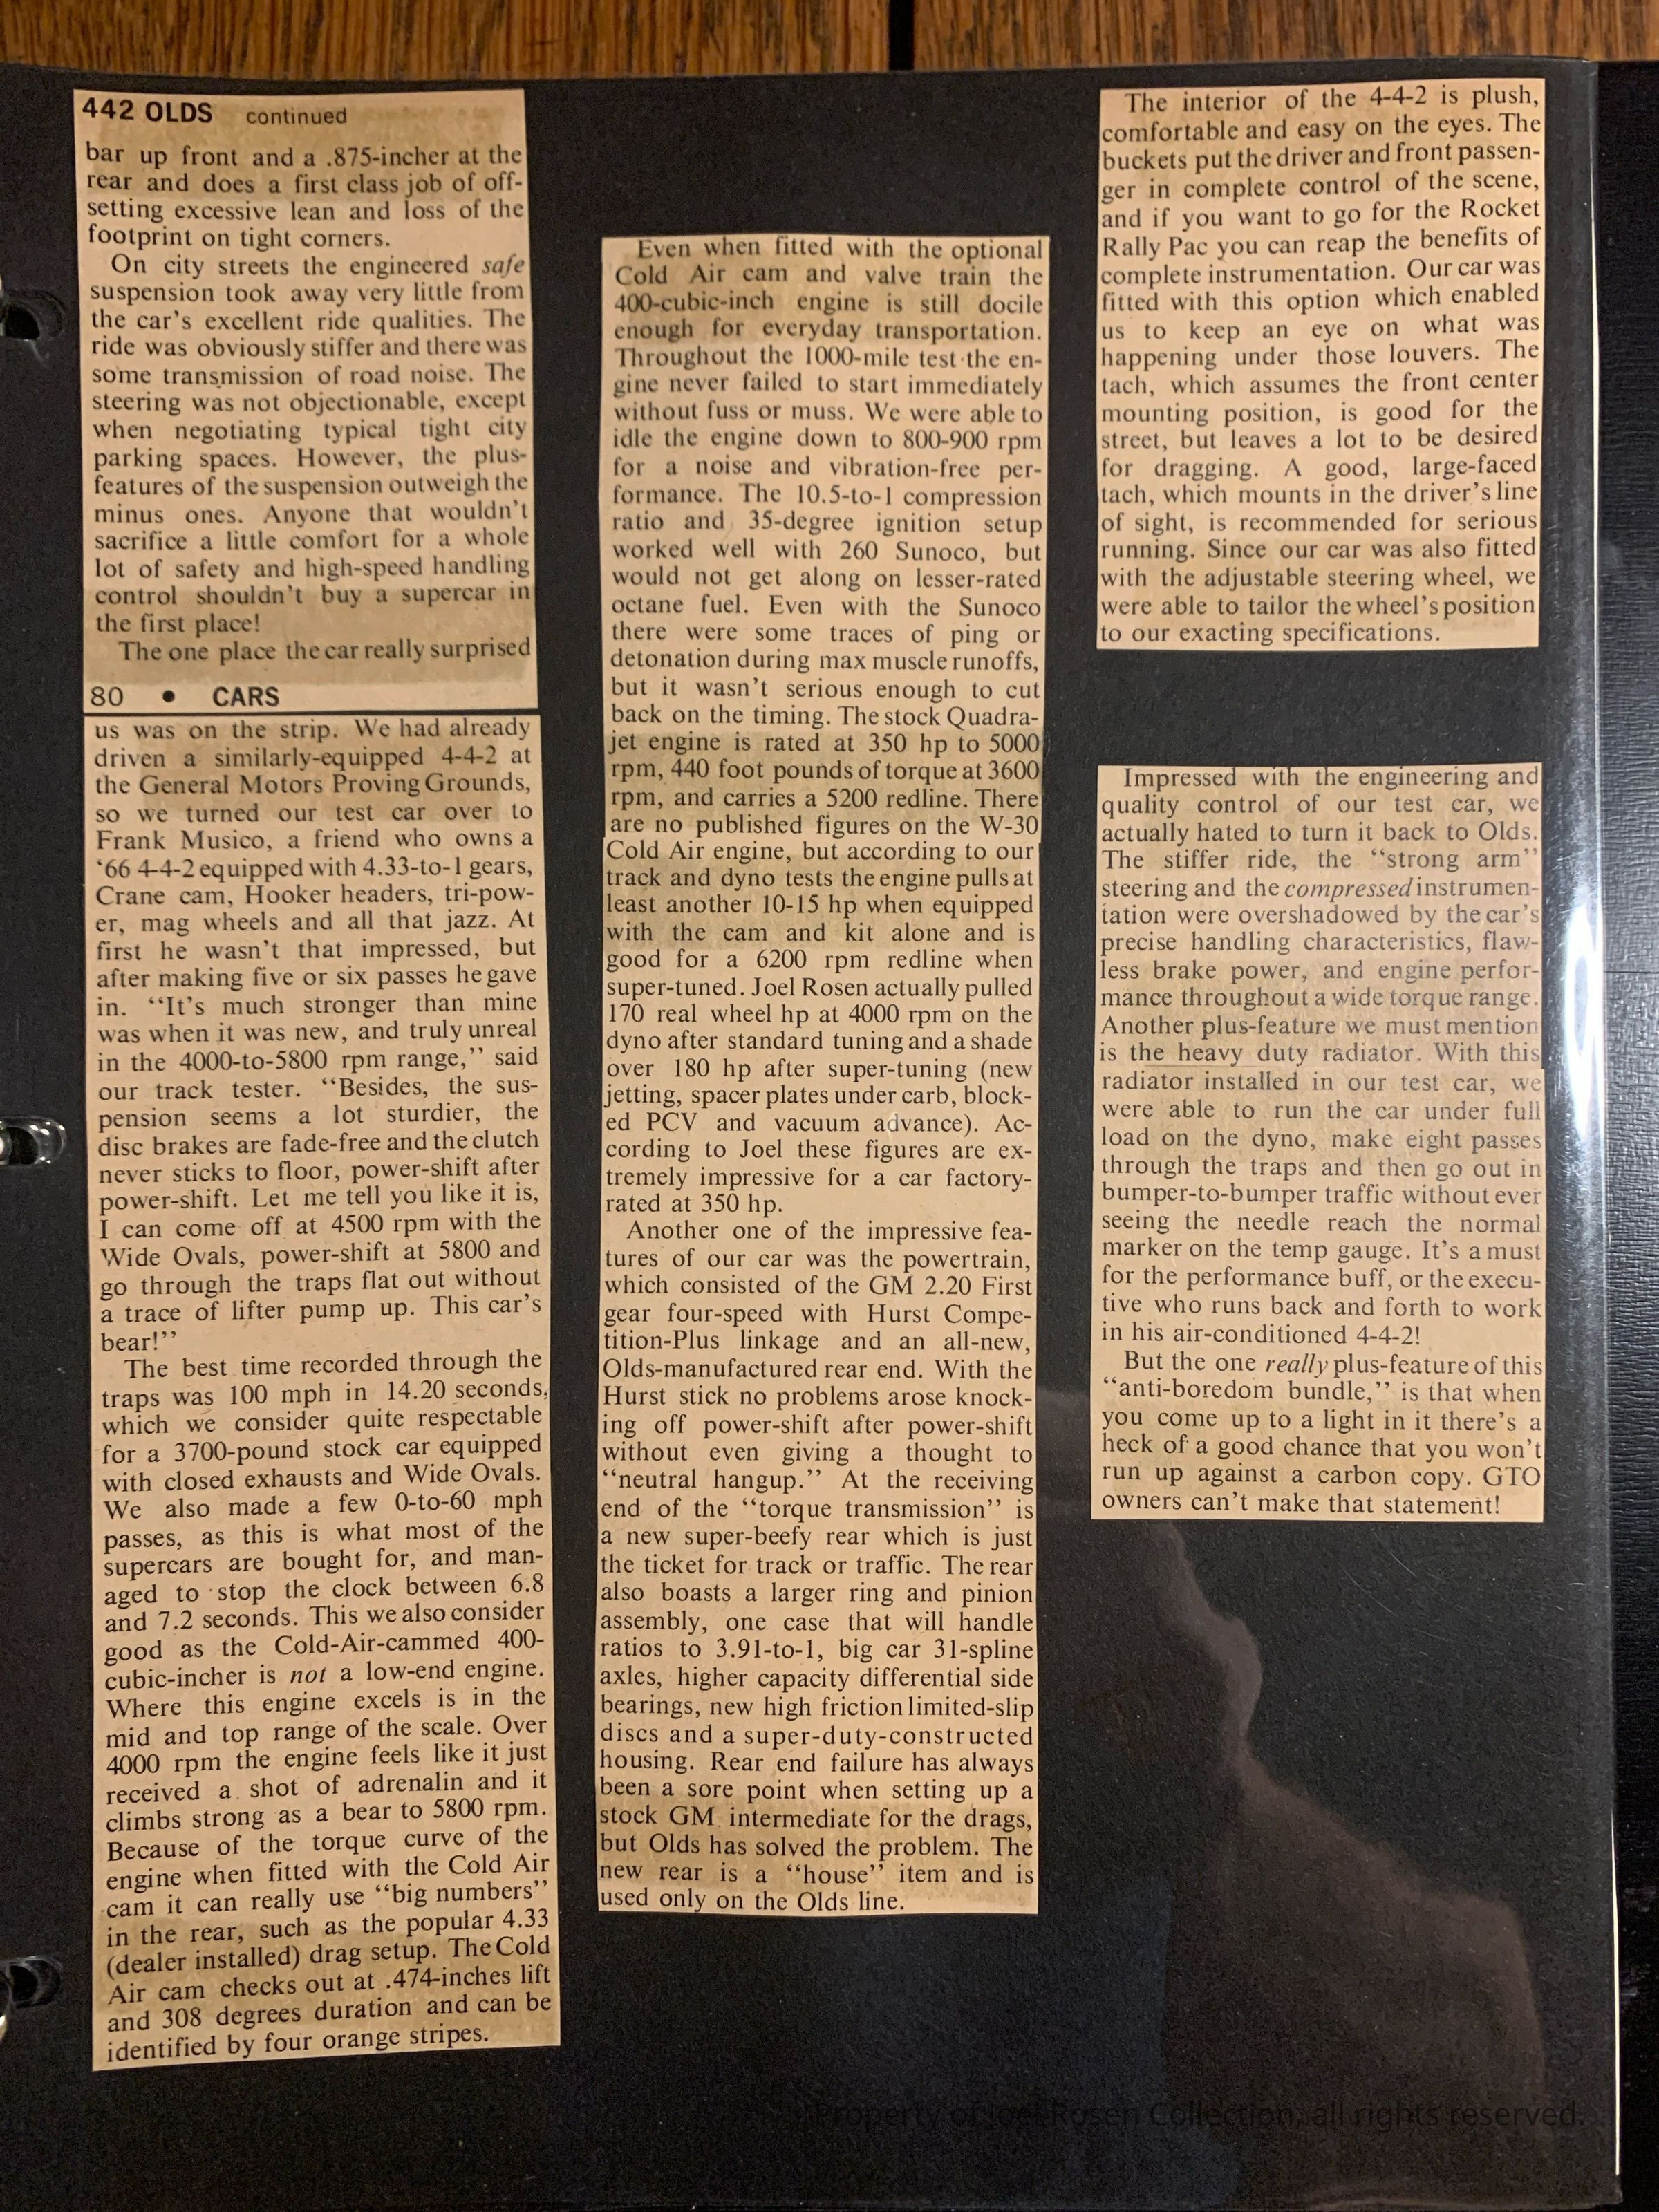 442 OLDS continued
bar up front and a .875-incher at the
rear and does a first class job of off-
setting excessive lean and loss of the
footprint on tight corners.
On city streets the engineered safe
suspension took away very little from
the car's excellent ride qualities. The
ride was obviously stiffer and there was
some transmission of road noise. The
steering was not objectionable, except
when negotiating typical tight city
parking spaces. However, the plus-
features of the suspension outweigh the
minus ones. Anyone that wouldn't
sacrifice a little comfort for a whole
lot of safety and high-speed handling
control shouldn't buy a supercar in
the first place!
The one place the car really surprised
80 • CARS
us was on the strip. We had already
driven a similarly-equipped 4-4-2 at
the General Motors Proving Grounds,
so we turned our test car over to
Frank Musico, a friend who owns a
'66 4-4-2 equipped with 4.33-to-1 gears,
Crane cam, Hooker headers, tri-pow-
er, mag wheels and all that jazz. At
first he wasn't that impressed, but
after making five or six passes he gave
in. “It's much stronger than mine
was when it was new, and truly unreal
in the 4000-to-5800 rpm range,” said
our track tester. “Besides, the sus-
pension seems a lot sturdier, the
disc brakes are fade-free and the clutch
never sticks to floor, power-shift after
power-shift. Let me tell you like it is,
I can come off at 4500 rpm with the
Wide Ovals, power-shift at 5800 and
go through the traps flat out without
a trace of lifter pump up. This car's
bear!”
The best time recorded through the
traps was 100 mph in 14.20 seconds,
which we consider quite respectable
for a 3700-pound stock car equipped
with closed exhausts and Wide Ovals.
We also made a few 0-to-60 mph
passes, as this is what most of the
supercars are bought for, and man-
aged to stop the clock between 6.8
and 7.2 seconds. This we also consider
good as the Cold-Air-cammed 400-
cubic-incher is not a low-end engine.
Where this engine excels is in the
mid and top range of the scale. Over
4000 rpm the engine feels like it just
received a shot of adrenalin and it
climbs strong as a bear to 5800 rpm.
Because of the torque curve of the
engine when fitted with the Cold Air
cam it can really use “big numbers”
in the rear, such as the popular 4.33
(dealer installed) drag setup. The Cold
Air cam checks out at .474-inches lift
and 308 degrees duration and can be
identified by four orange stripes.
Even when fitted with the optional
Cold Air cam and valve train the
400-cubic-inch engine is still docile
enough for everyday transportation.
Throughout the 1000-mile test the en-
gine never failed to start immediately
without fuss or muss. We were able to
idle the engine down to 800-900 rpm
for a noise and vibration-free per-
formance. The 10.5-to-1 compression
ratio and 35-degree ignition setup
worked well with 260 Sunoco, but
would not get along on lesser-rated
octane fuel. Even with the Sunoco
there were some traces of ping or
detonation during max muscle runoffs,
but it wasn't serious enough to cut
back on the timing. The stock Quadra-
jet engine is rated at 350 hp to 5000
rpm, 440 foot pounds of torque at 3600
rpm, and carries a 5200 redline. There
are no published figures on the W-30
Cold Air engine, but according to our
track and dyno tests the engine pulls at
least another 10-15 hp when equipped
with the cam and kit alone and is
good for a 6200 rpm redline when
super-tuned. Joel Rosen actually pulled
170 real wheel hp at 4000 rpm on the
dyno after standard tuning and a shade
over 180 hp after super-tuning (new
jetting, spacer plates under carb, block-
ed PCV and vacuum advance). Ac-
cording to Joel these figures are ex-
tremely impressive for a car factory-
rated at 350 hp.
Another one of the impressive fea-
tures of our car was the powertrain,
which consisted of the GM 2.20 First
gear four-speed with Hurst Compe-
tition-Plus linkage and an all-new,
Olds-manufactured rear end. With the
Hurst stick no problems arose knock-
ing off power-shift after power-shift
without even giving a thought to
“neutral hangup.” At the receiving
end of the “torque transmission” is
a new super-beefy rear which is just
the ticket for track or traffic. The rear
also boasts a larger ring and pinion
assembly, one case that will handle
ratios to 3.91-to-1, big car 31-spline
axles, higher capacity differential side
bearings, new high friction limited-slip
discs and a super-duty-constructed
housing. Rear end failure has always
been a sore point when setting up a
stock GM intermediate for the drags,
but Olds has solved the problem. The
new rear is a “house” item and is
used only on the Olds line.
The interior of the 4-4-2 is plush,
comfortable and easy on the eyes. The
buckets put the driver and front passen-
ger in complete control of the scene,
and if you want to go for the Rocket
Rally Pac you can reap the benefits of
complete instrumentation. Our car was
fitted with this option which enabled
us to keep an eye on what was
happening under those louvers. The
tach, which assumes the front center
mounting position, is good for the
street, but leaves a lot to be desired
for dragging. A good, large-faced
tach, which mounts in the driver's line
of sight, is recommended for serious
running. Since our car was also fitted
with the adjustable steering wheel, we
were able to tailor the wheel's position
to our exacting specifications.
Impressed with the engineering and
quality control of our test car, we
actually hated to turn it back to Olds.
The stiffer ride, the “strong arm”
steering and the compressed instrumen-
tation were overshadowed by the car's
precise handling characteristics, flaw-
less brake power, and engine perfor-
mance throughout a wide torque range.
Another plus-feature we must mention
is the heavy duty radiator. With this
radiator installed in our test car, we
were able to run the car under full
load on the dyno, make eight passes
through the traps and then go out in
bumper-to-bumper traffic without ever
seeing the needle reach the normal
marker on the temp gauge. It's a must
for the performance buff, or the execu-
tive who runs back and forth to work
in his air-conditioned 4-4-2!
But the one really plus-feature of this
“anti-boredom bundle,” is that when
you come up to a light in it there's a
heck of a good chance that you won't
run up against a carbon copy. GTO
owners can't make that statement!
Property of Joel Rosen Collection, all rights reserved.